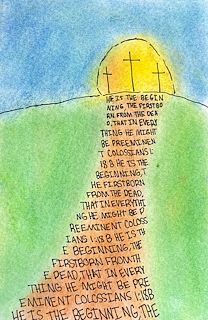 HE IS THE BEGIN
NING, THE FIRSTBO
RN FROM THE DEA
D, THAT IN EVERY
THING HE MIGHT
BE PREEMINEN
T COLOSSIANS 1:
18B HE IS THE
BEGINNING, T
HE FIRSTBORN
FROM THE DEAD,
THAT IN EVERYTHI
NG HE MIGHT BE P
REEMINENT COLOSS
IANS 1:18B HE IS TH
E BEGINNING, THE
FIRSTBORN FROM TH
E DEAD, THAT IN EVERY
THING HE MIGHT BE PRE
EMINENT COLOSSIANS 1:18B
HE IS THE BEGINNING, THE